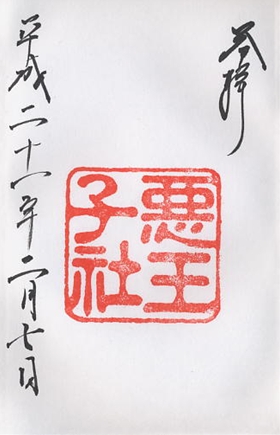 参拝
悪王
子社
平成二十一年二月七日